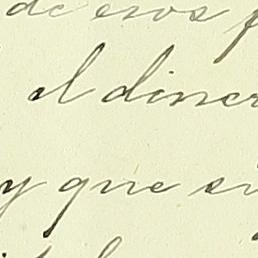 de esos
el diner
y que